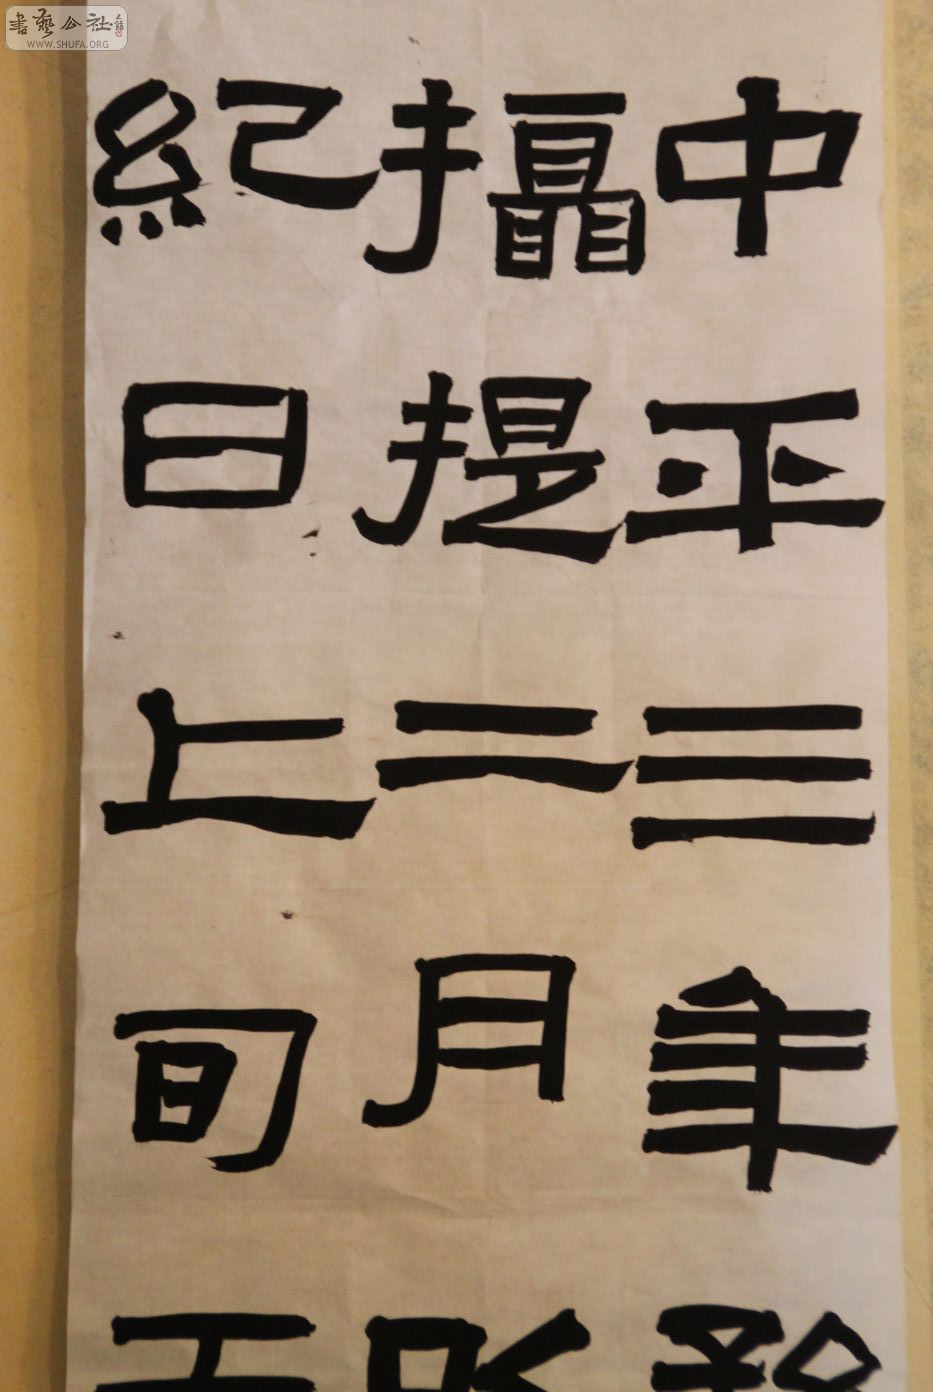 書藝公社
WWW.SHUFA.ORG
中平三年
攝提二月
紀日上旬